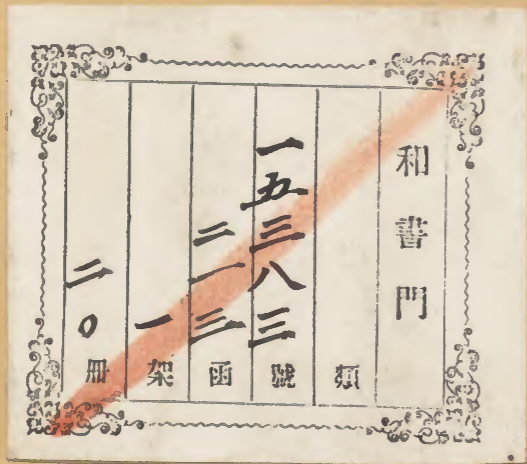 和書門
類
一五三八三號
二一三函
一架
二〇冊